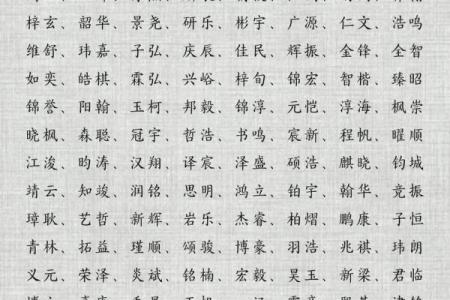 梓玄、韶华、景尧、研乐、彬宇、广源、仁文、浩鸣
维舒、玮嘉、子弘、庆辰、佳民、辉振、金锋、全智
如奕、皓棋、霖弘、兴峪、梓旬、锦宏、智楷、臻昭
锦誉、阳翰、玉柯、邦毅、锦淳、元恺、淳海、枫崇
晓枫、森聪、冠宇、哲浩、书鸣、宸新、程帆、曜顺
江浚、昀涛、汉翔、译宸、泽盛、硕浩、麒晓、钧城
靖云、知竣、润铭、思明、鸿立、铂宇、翰华、竞振
璋耿、艺哲、新辉、岩乐、杰睿、柏熠、鹏康、子恒
青林、拓益、瑾顺、颂骏、博豪、羽浩、兆祺、玮朗
义元、荣泽、炎斌、铭楠、宏毅、昊玉、新梁、君临